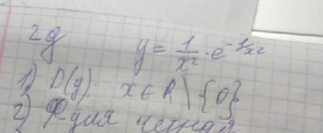 2g y = 1/x² · e^(-1/x²)
1) D(y) x ∈ R \ {0}
2) Ф-ция четная